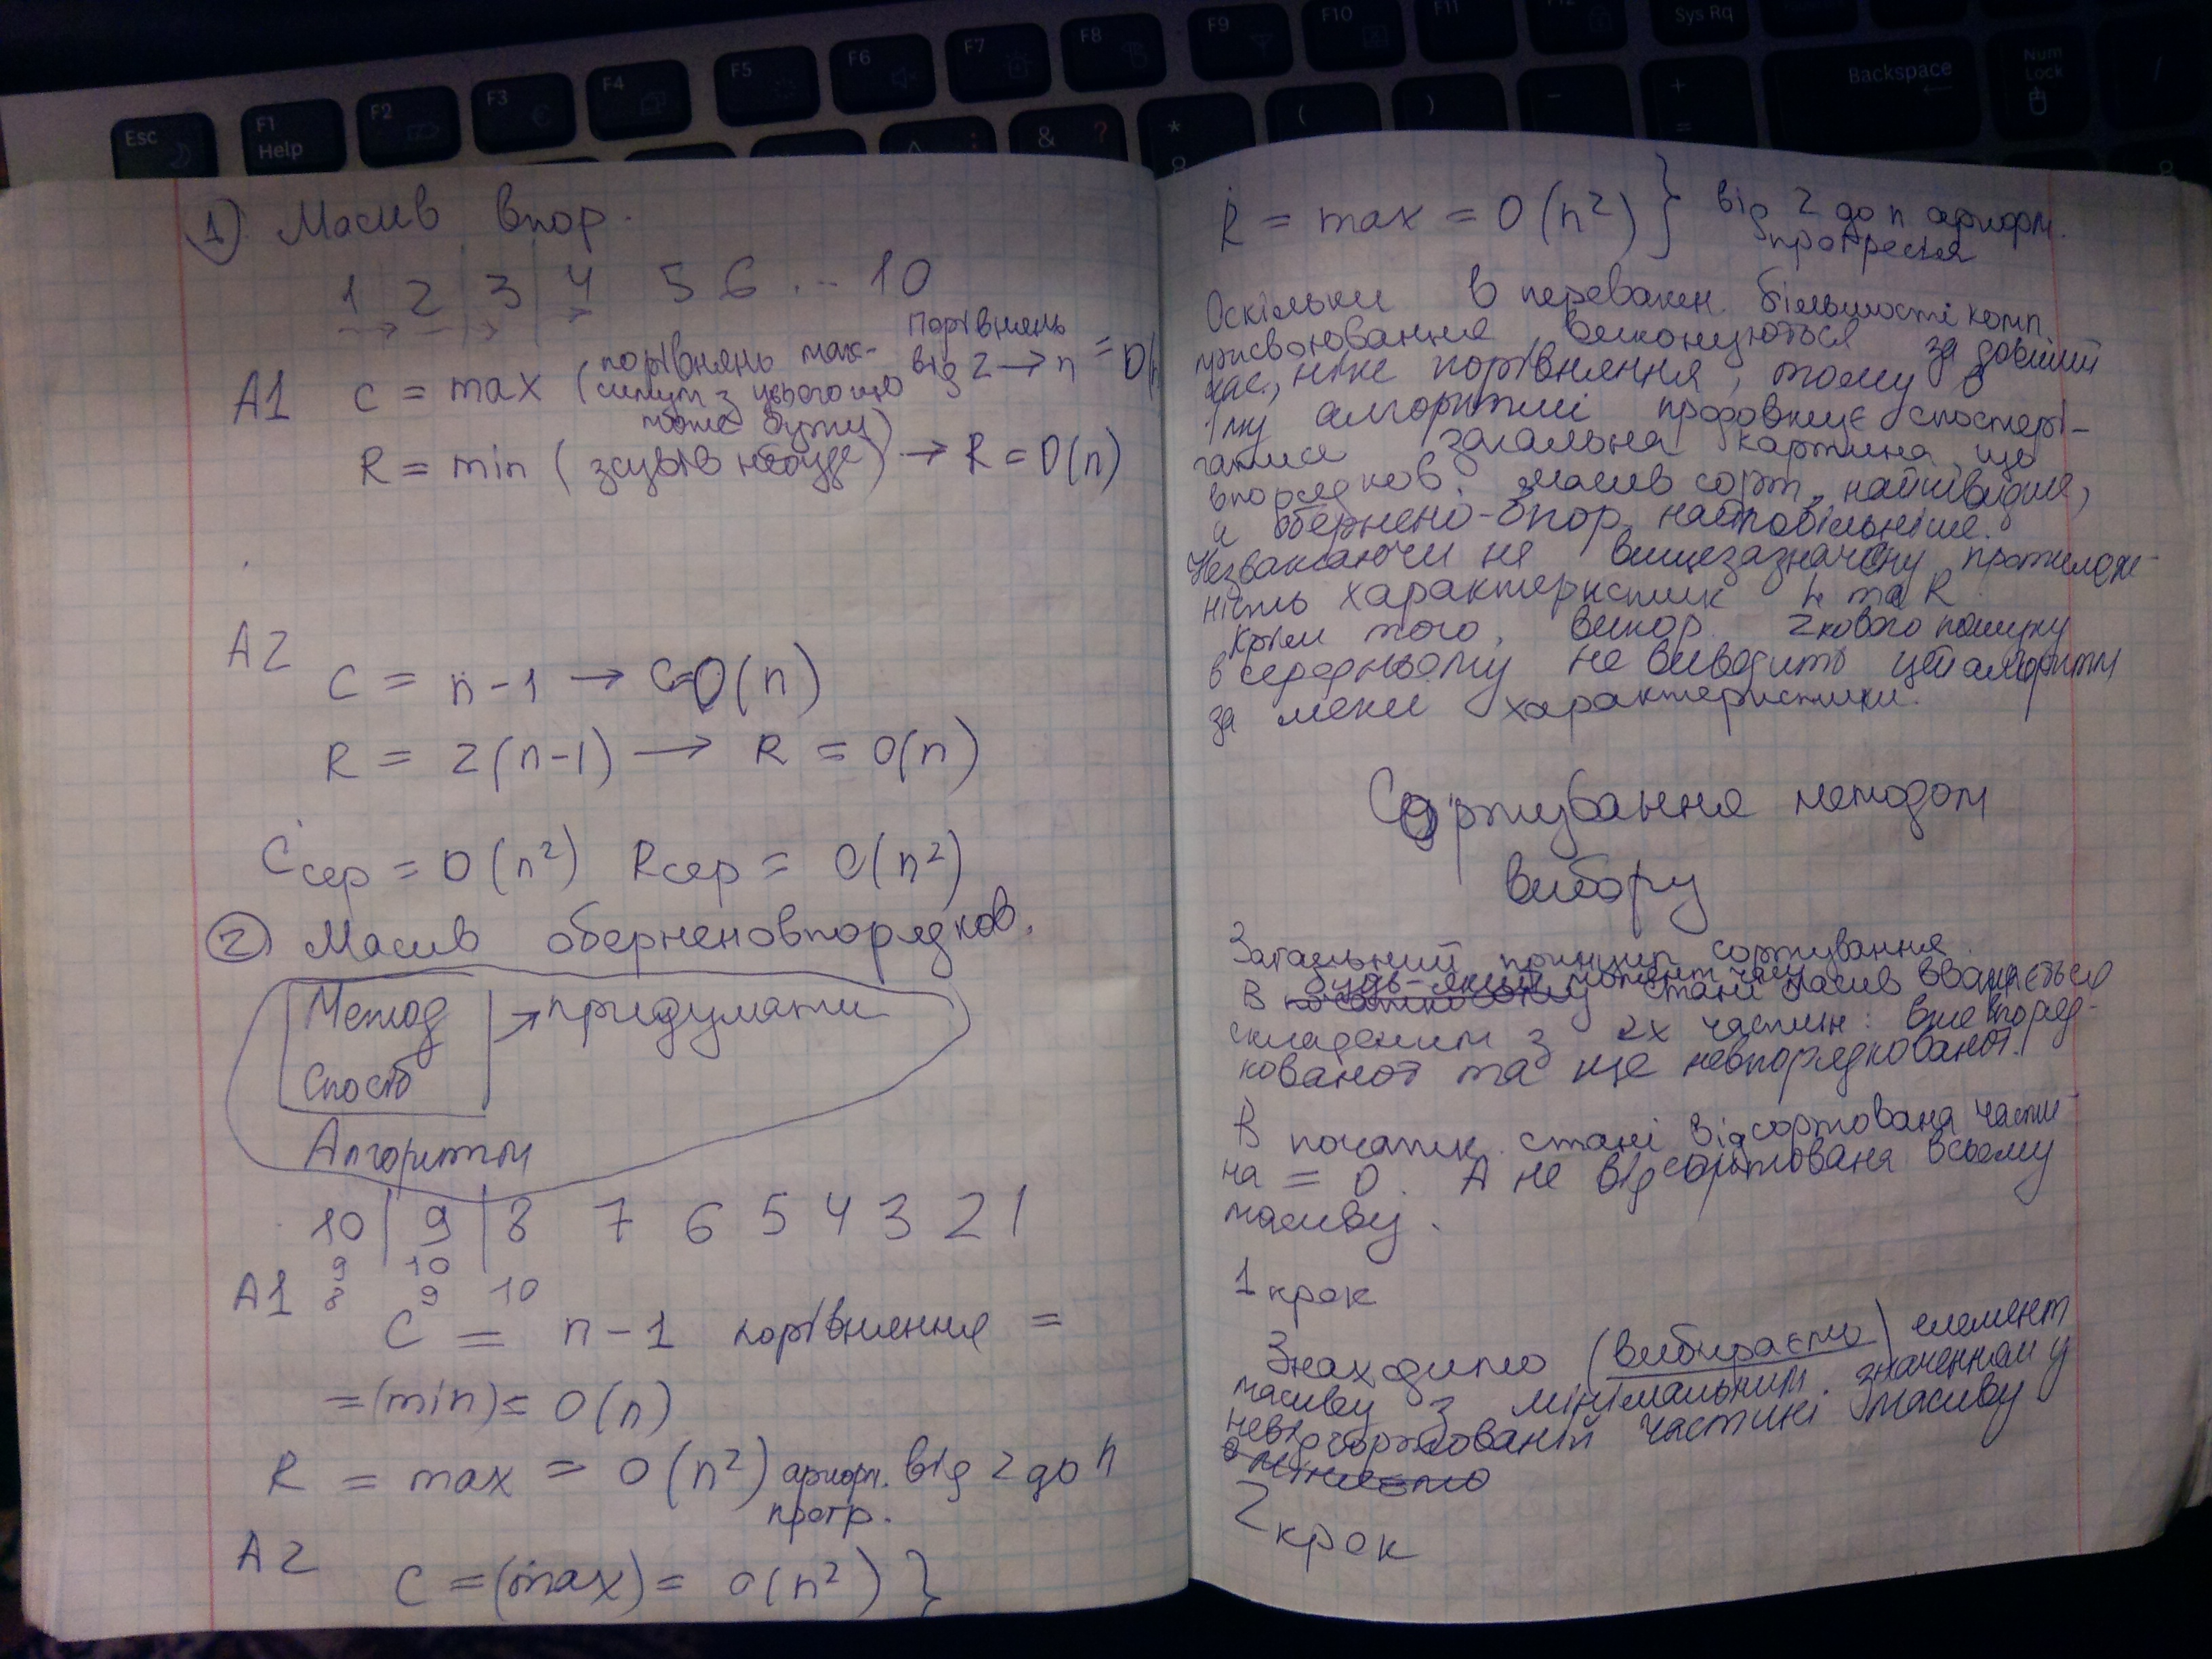 Esc
F1
Help
F2
F3
F4
F5
F6
F7
F8
F9
F10
F11
Sys Rq
Backspace
Num
Lock
1) Масив впор.
1 2 3 4 5 6 ... 10
А1 C = max (порівнянь мак-
симум з усього що
може бути) порівнянь
від 2 → n = O(n
R = min (зсувів не буде) → R = O(n)
А2
C = n-1 → C=O(n)
R = 2(n-1) → R = O(n)
Cсер = O(n²) Rсер = O(n²)
2) Масив оберненовпорядков.
Метод → придумати
Спосіб
Алгоритм
10 | 9 | 8 7 6 5 4 3 2 1
9 10
А1 8 9 10
C = n-1 порівняння =
=(min)= O(n)
R = max = O(n²) арифм. від 2 до n
прогр.
А2 C =(max)= O(n²) }
R = max = O(n²) } від 2 до n арифм.
прогресія
Оскільки в переважн. більшості комп.
присвоювання виконуються за довший
час, ніж порівняння, тому в
алгоритмі продовжує спостері-
гатися загальна картина, що
впорядков. масив сорт. найшвидше,
а обернено-впор. найповільніше.
Незважаючи на вищезазначену протилеж-
ність характеристик та R.
Крім того, викор. 2кового пошуку
в середньому не виводить цей алгоритм
за межі характеристики.
Сортування методом
вибору
Загальний принцип сортування.
В будь-який момент часу масив вважається
складеним з 2х частин: вже впоряд-
кованої та ще невпорядкованої.
В початк. стані відсортована части-
на = 0. А не відсортована всьому
масиву.
1 крок
Знаходимо (вибираємо) елемент
масиву з мінімальним значенням у
невідсортованій частині масиву
2 крок